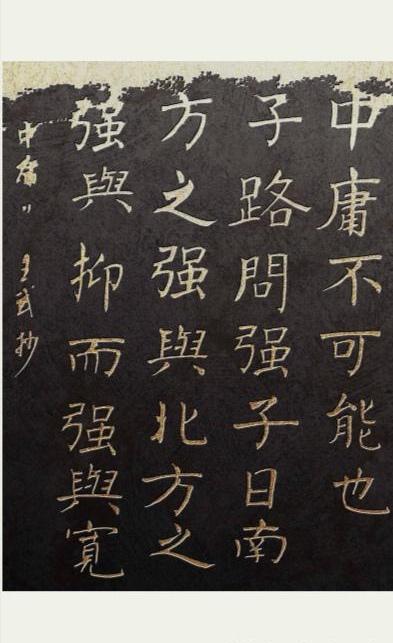 中庸不可能也
子路問强子曰南
方之强與北方之
强與抑而强與寬
中庸 王武抄